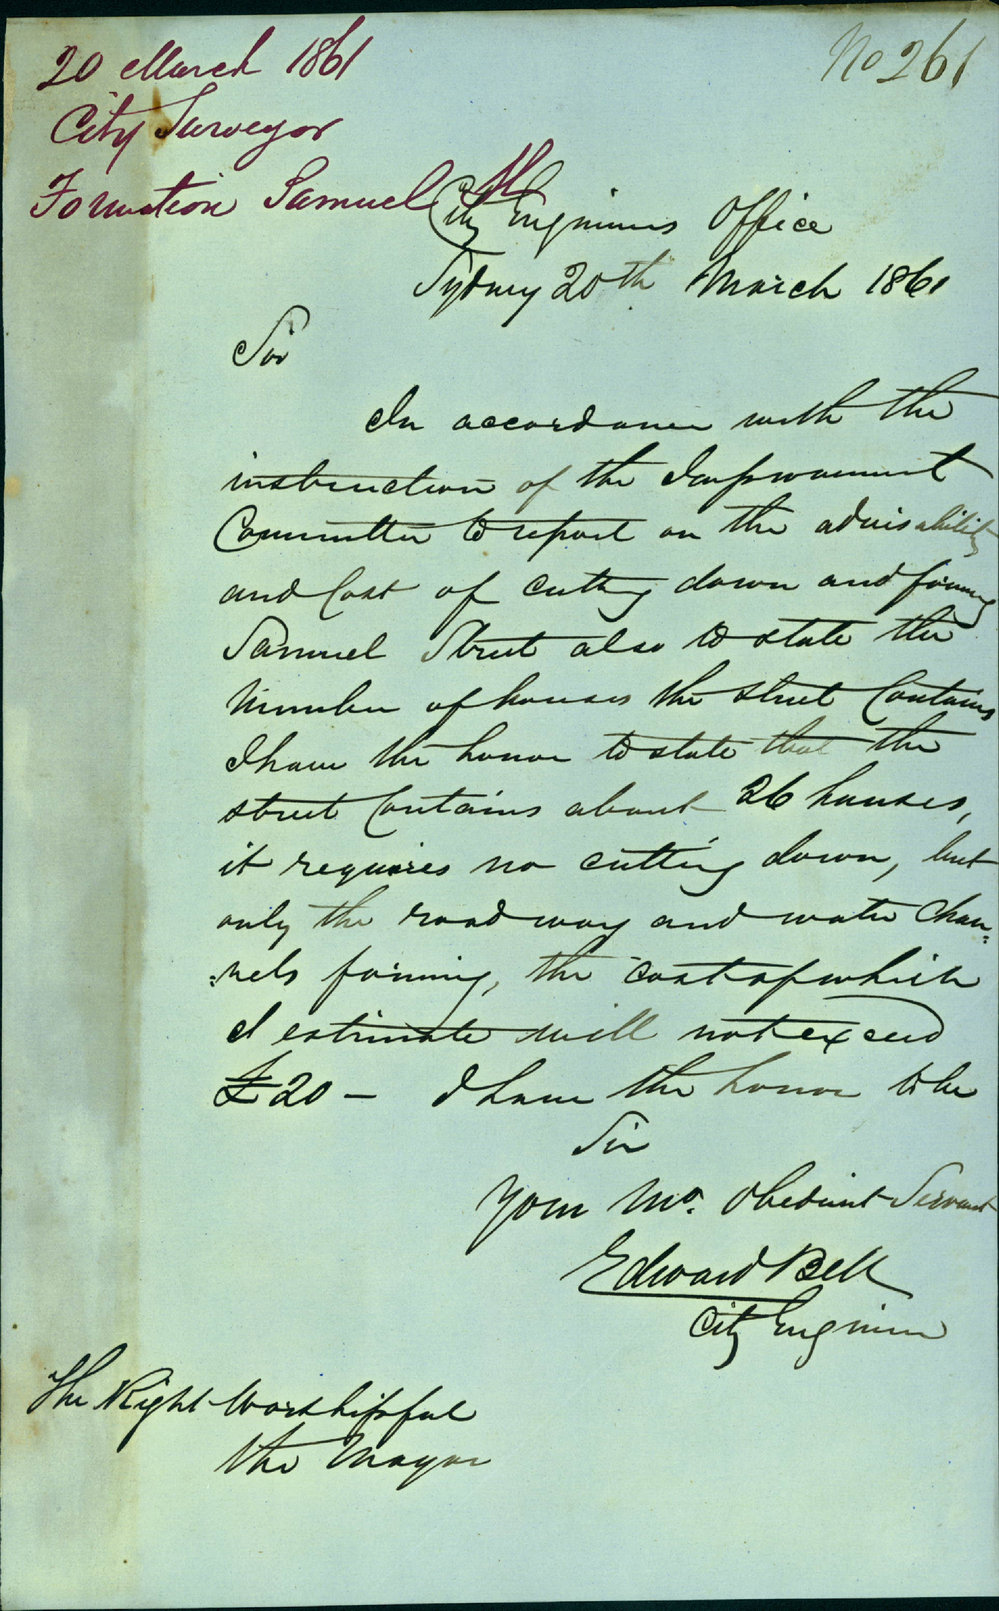 20 March 1861
No 261
City Surveyor
Formation Samuel St
City Engineers Office
Sydney 20th March 1861
Sir
In accordance with the
instruction of the Improvement
Committee to report on the advisability
and Cost of cutting down and forming
Samuel Street also to state the
Number of houses the street Contains
I have the honor to state that the
street Contains about 26 houses,
it requires no cutting down, but
only the roadway and water Chan=
=nels forming, the cost of which
I estimate will not exceed
£20 — I have the honor to be
Sir
Your Mo. Obedient Servant
Edward Bell
City Engineer
The Right Worshipful
the Mayor